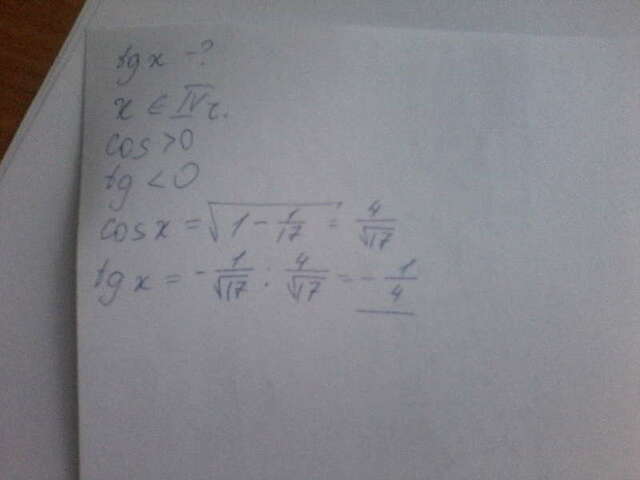 tg x - ?
x ∈ IVч.
cos > 0
tg < 0
cos x = √(1 - 1/17) = 4/√17
tg x = - 1/√17 : 4/√17 = - 1/4